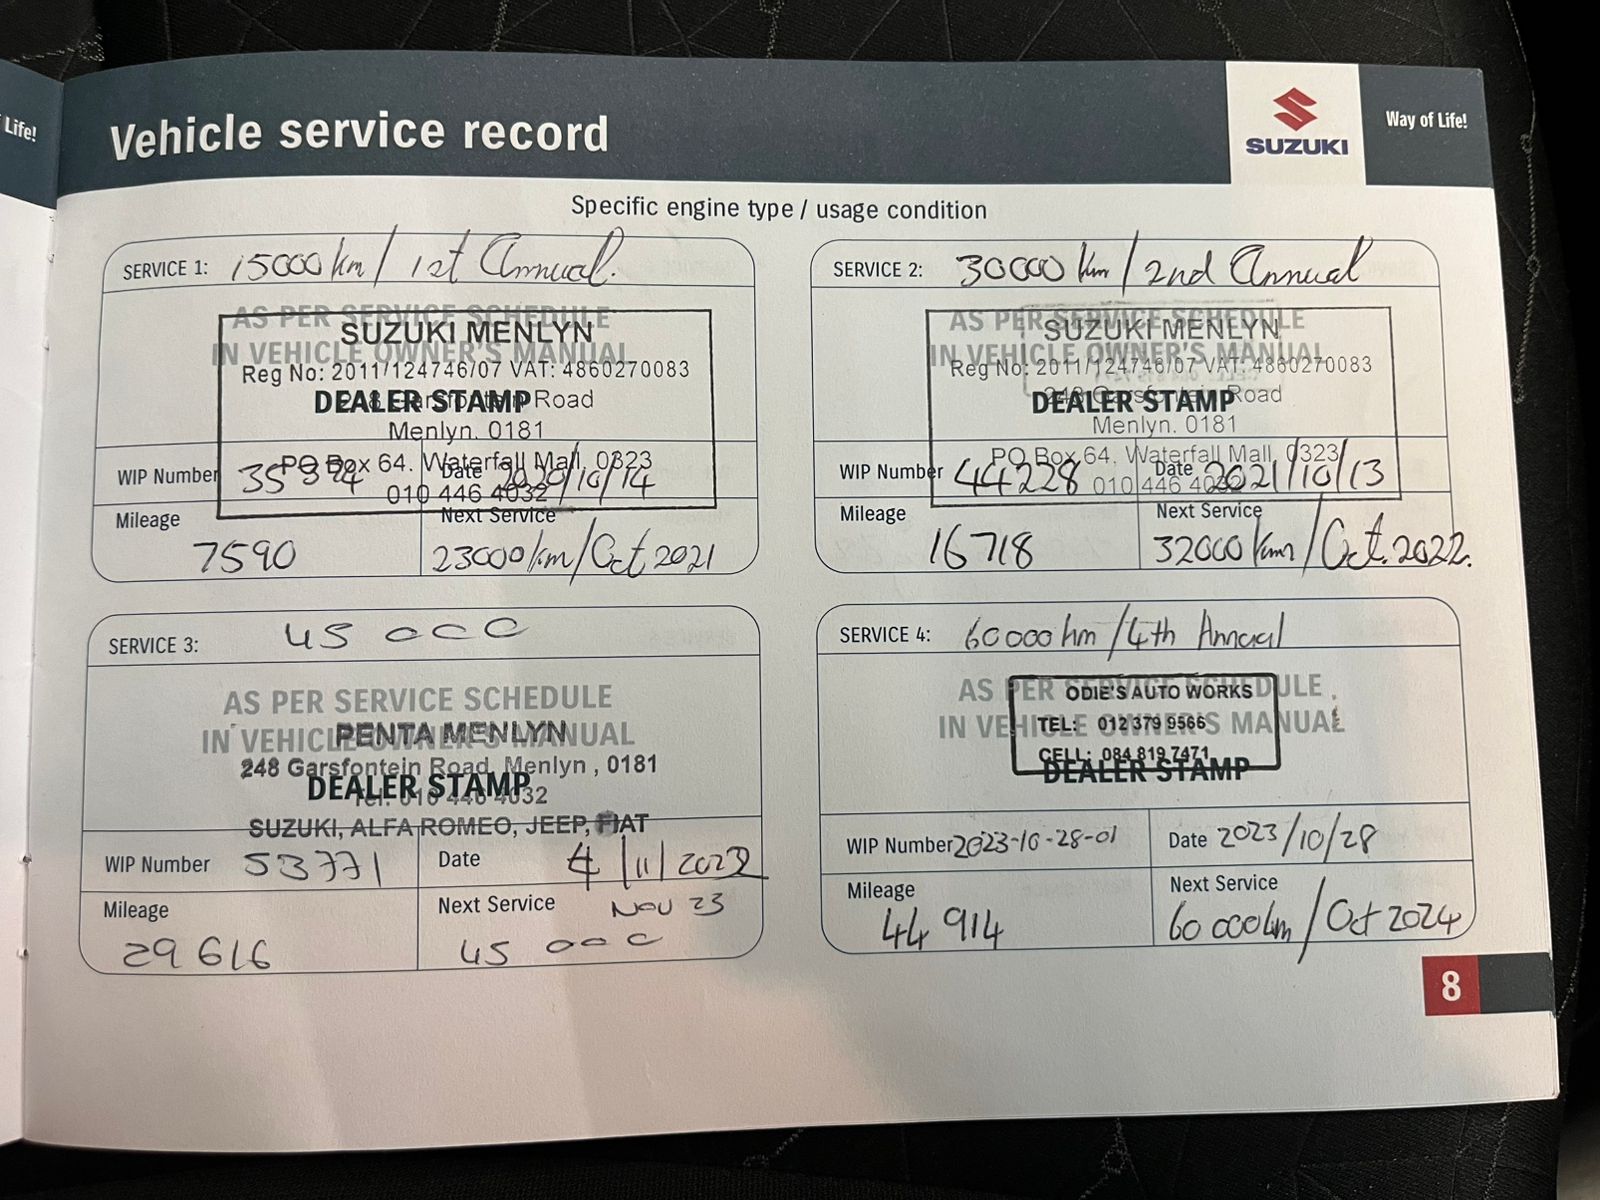 Life!
Vehicle service record
SUZUKI
Way of Life!
Specific engine type / usage condition
SERVICE 1: 15000 km / 1st Annual.
AS PER SERVICE SCHEDULE
SUZUKI MENLYN
IN VEHICLE OWNER'S MANUAL
Reg No: 2011/124746/07 VAT: 4860270083
DEALER STAMP
Garsfontein Road
Menlyn. 0181
PO Box 64, Waterfall Mall, 0323
WIP Number Date 2020/10/14
010 446 4032
Mileage Next Service
7590 23000 km / Oct 2021
SERVICE 2: 30000 km / 2nd Annual
AS PER SERVICE SCHEDULE
SUZUKI MENLYN
IN VEHICLE OWNER'S MANUAL
Reg No: 2011/124746/07 VAT: 4860270083
248 Garsfontein Road
DEALER STAMP
Menlyn. 0181
PO Box 64, Waterfall Mall, 0323
WIP Number 44228 Date 2021/10/13
010 446 4032
Mileage Next Service
16718 32000 km / Oct. 2022.
SERVICE 3: 45 000
AS PER SERVICE SCHEDULE
PENTA MENLYN
IN VEHICLE OWNER'S MANUAL
248 Garsfontein Road, Menlyn, 0181
DEALER STAMP
Tel: 010 446 4032
SUZUKI, ALFA ROMEO, JEEP, FIAT
WIP Number 53771 Date 4/11/2022
Mileage Next Service Nov 23
29616 45 000
SERVICE 4: 60000 km / 4th Annual
AS PER SERVICE SCHEDULE
ODIE'S AUTO WORKS
IN VEHICLE OWNER'S MANUAL
TEL: 012 379 9566
CELL: 084 819 7471
DEALER STAMP
WIP Number 2023-10-28-01 Date 2023/10/28
Mileage Next Service
44 914 60 000 km / Oct 2024
8